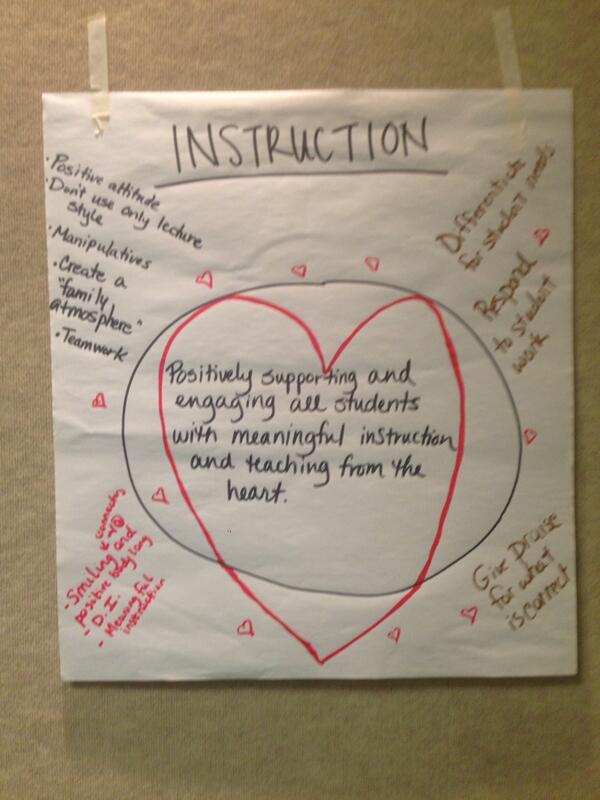 INSTRUCTION
• Positive attitude
• Don't use only lecture
style
• Manipulatives
• Create a
"family
atmosphere"
• Teamwork
Differentiate
for student needs
Respond
to student
work
Positively supporting and
engaging all students
with meaningful instruction
and teaching from the
heart.
connecting
- Smiling and
positive body lang
- D.I.
- Meaningful
instruction
Give Praise
for what
is correct